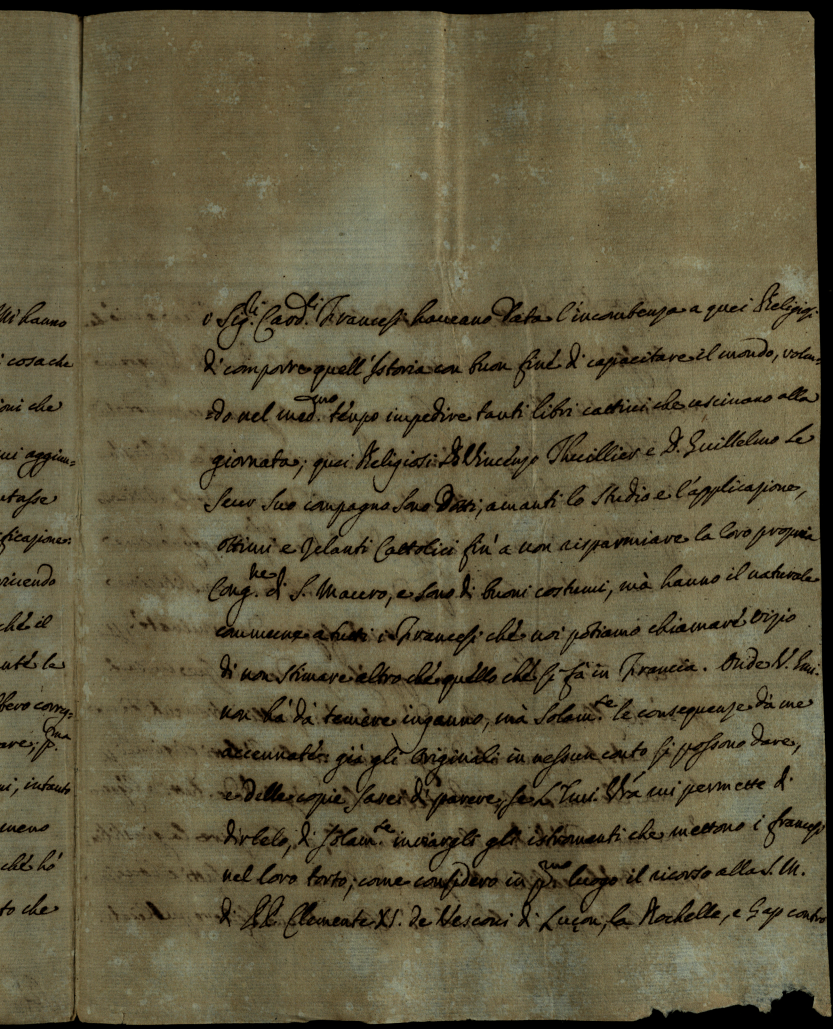 Mi hanno
cosa che
ioni che
mi aggiun=
ficazione
ricendo
ché il
ni, intanto
meno
ché hò
to che
i Sig.ri Card.li Francesi haveano data l'incombenza a quei Religiosi
di comporre quell'Istoria con buon fine di capacitare il mondo, volen=
do nel med.mo tempo impedire tanti libri cattivi che usciuano alla
giornata; quei Religiosi D. Vincenzo Thuillier e D. Guillelmo Le
Seur suo compagno sono Dotti, amanti lo studio e l'applicazione,
ottimi e zelanti Cattolici fin' a non risparmiare la loro propria
Cong.ne di S. Mauro, e sono di buoni costumi, mà hanno il naturale
commune a tutti i Francesi ché noi potiamo chiamaré vizio
di non stimare altro ché quello ché si fà in Francia. Onde V. Emi.
non hà dà temere inganno, mà solam.te le conseguenze dà me
accennate: già gli Originali in nessun conto si possono dare,
e delle copie sarei di parere, se L'Emi. Vrà mi permette di
dirlelo, di solam.te inviargli gli istromenti che mettono i francesi
nel loro torto, come considero in p.mo luogo il ricorso alla S. M.
di PP. Clemente XI. de Vescovi di Luçon, la Rochelle, e Gap contro